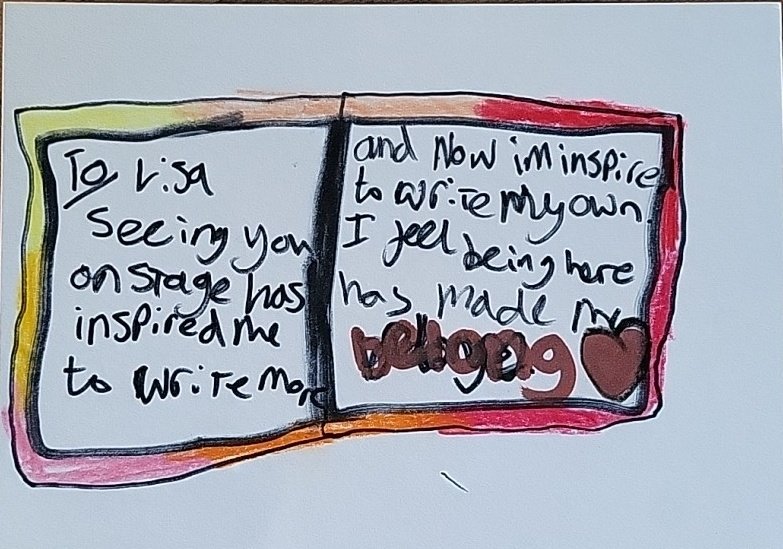 To Lisa
Seeing you
on stage has
inspired me
to write more
and Now im inspire
to write My own
I feel being here
has made me
belong